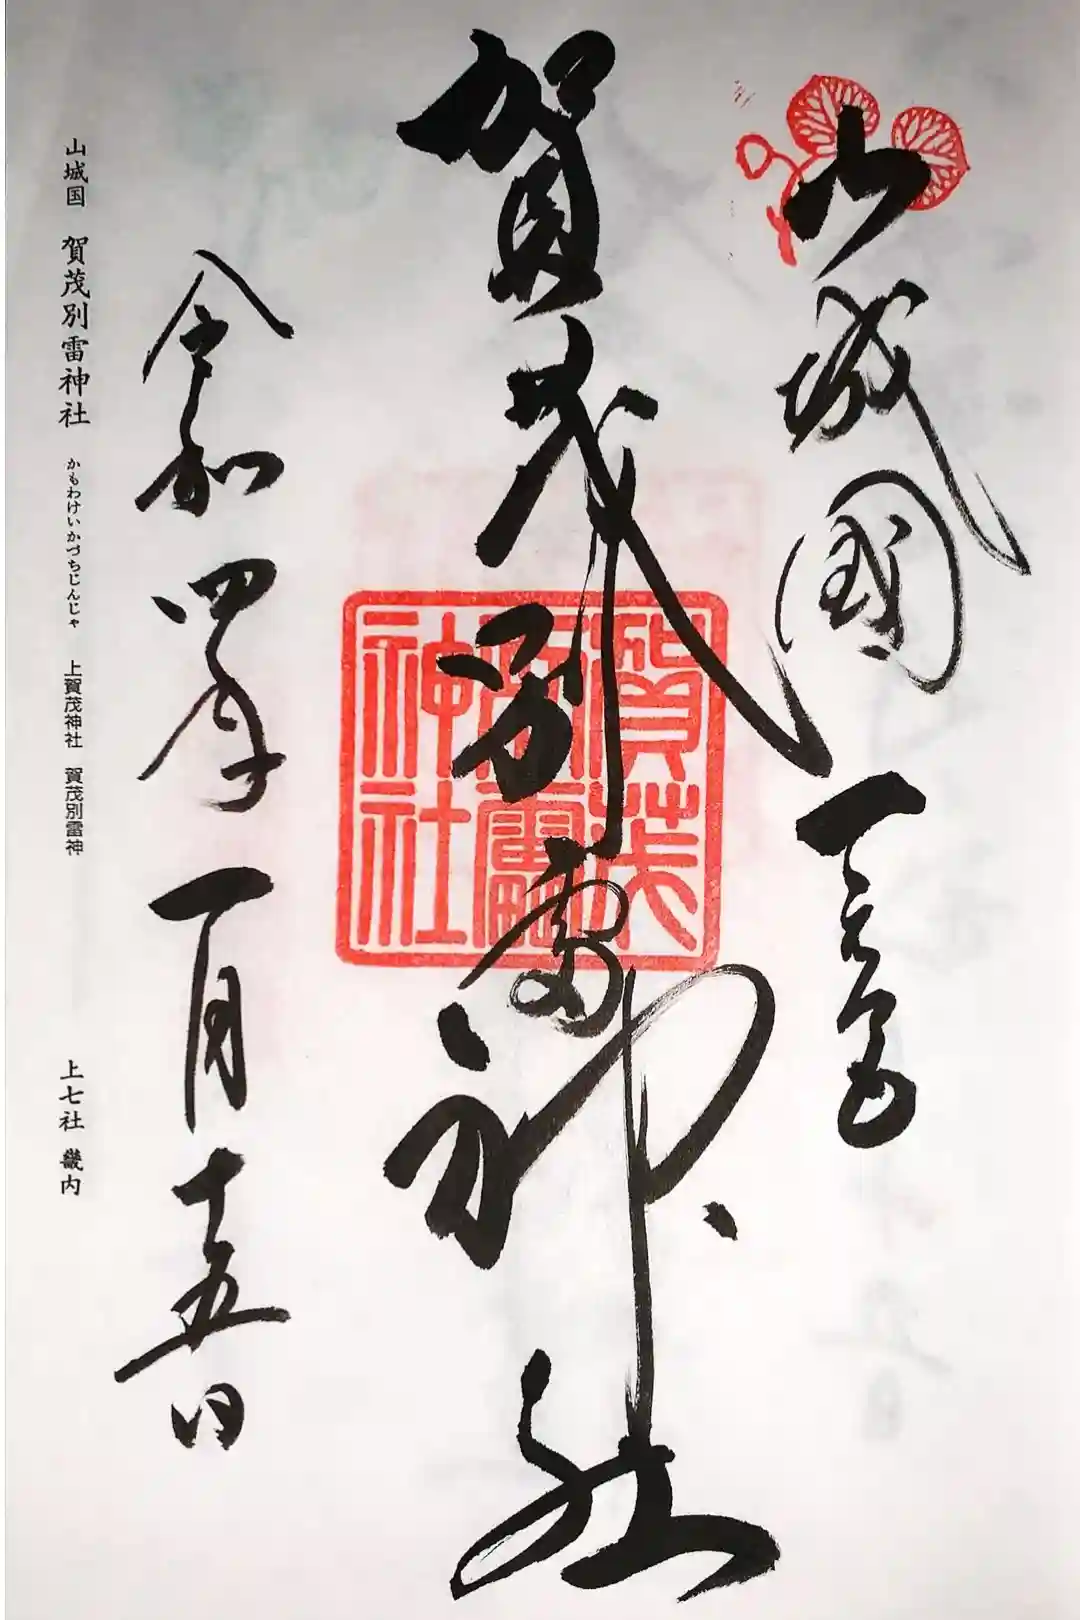 山城國 一之宮
賀茂別雷神社
賀茂
別雷
神社
令和四年一月十五日
山城国 賀茂別雷神社 かもわけいかづちじんじゃ 上賀茂神社 賀茂別雷神 上七社 畿内